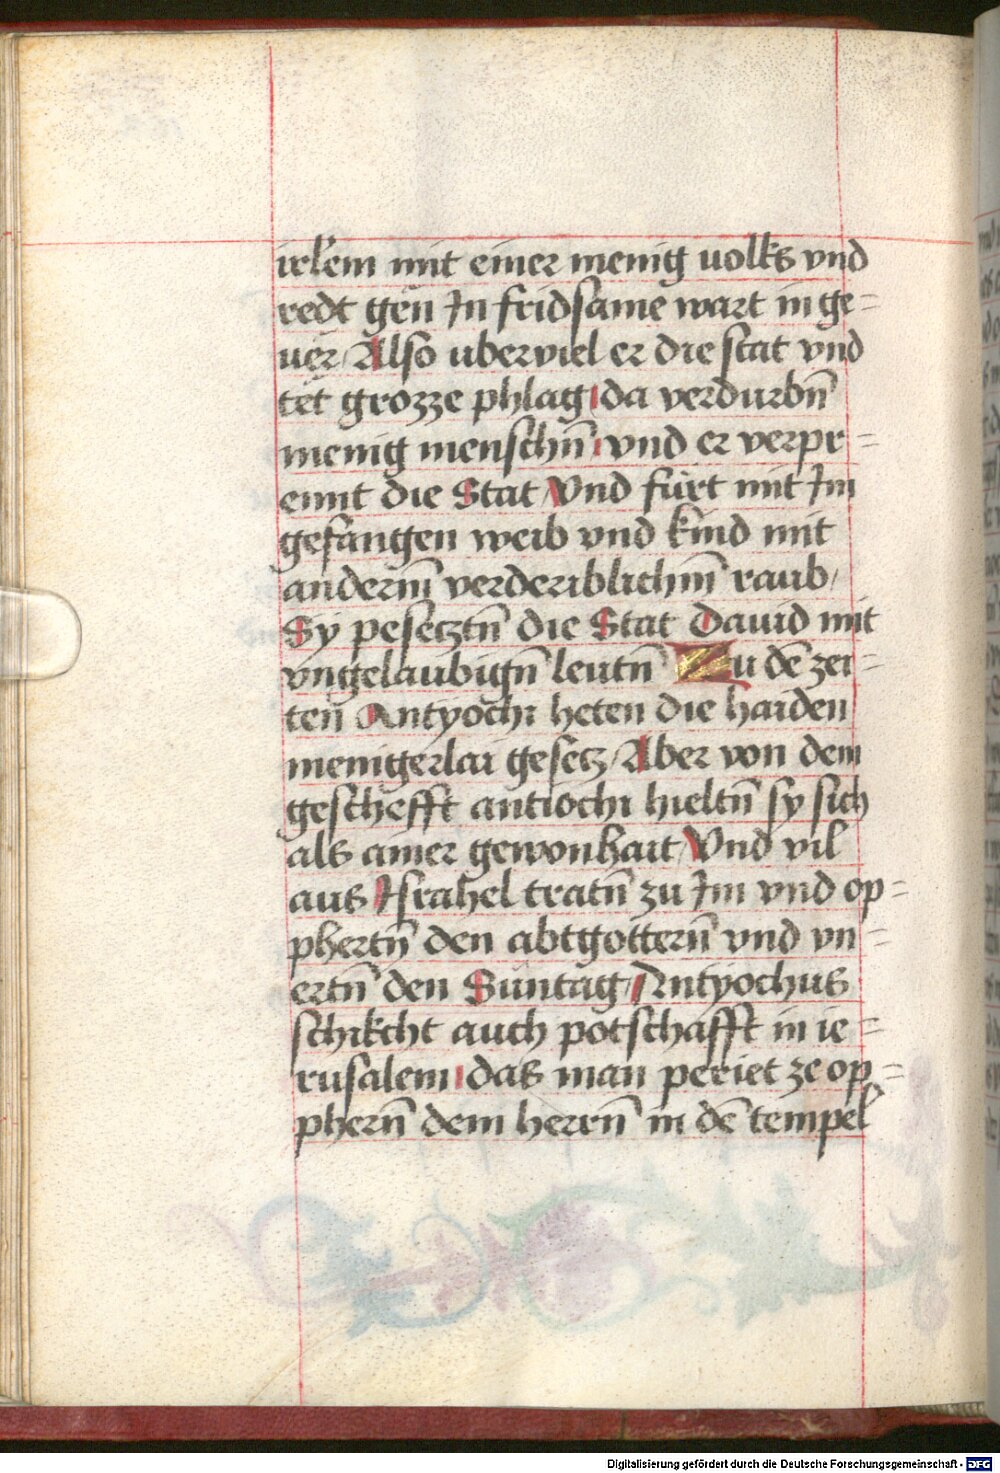 irl̕em mit einer menig uolks vnd
redt gen In fridsame wart in ge=
uer / Also uberviel er die stat vnd
tet grozze phlag / da verdurbn̄
menig menschn̄ / vnd er verpr=
ennt die Stat / Vnd fürt mit Im
gefangen weib vnd kind mit
anderm̄ verderiblichm̄ raub /
Sy pesetztn̄ die Stat Dauid mit
vngelaubign̄ leutn̄ Zu dē zei=
ten Antyochi heten die haiden
menigerlai gesetz / Aber von dem
geschefft antiochi hieltn̄ sy sich
als ainer gewonhait / Vnd vil
aus Israhel tratn̄ zu Im vnd op=
phertn̄ den abtgöttern̄ vnd vn=
ertn̄ den Suntag / Antyochus
schikcht auch potschafft in ie=
rusalem / das man periet ze op=
phern̄ dem herrn̄ in dē tempel
Digitalisierung gefördert durch die Deutsche Forschungsgemeinschaft - DFG